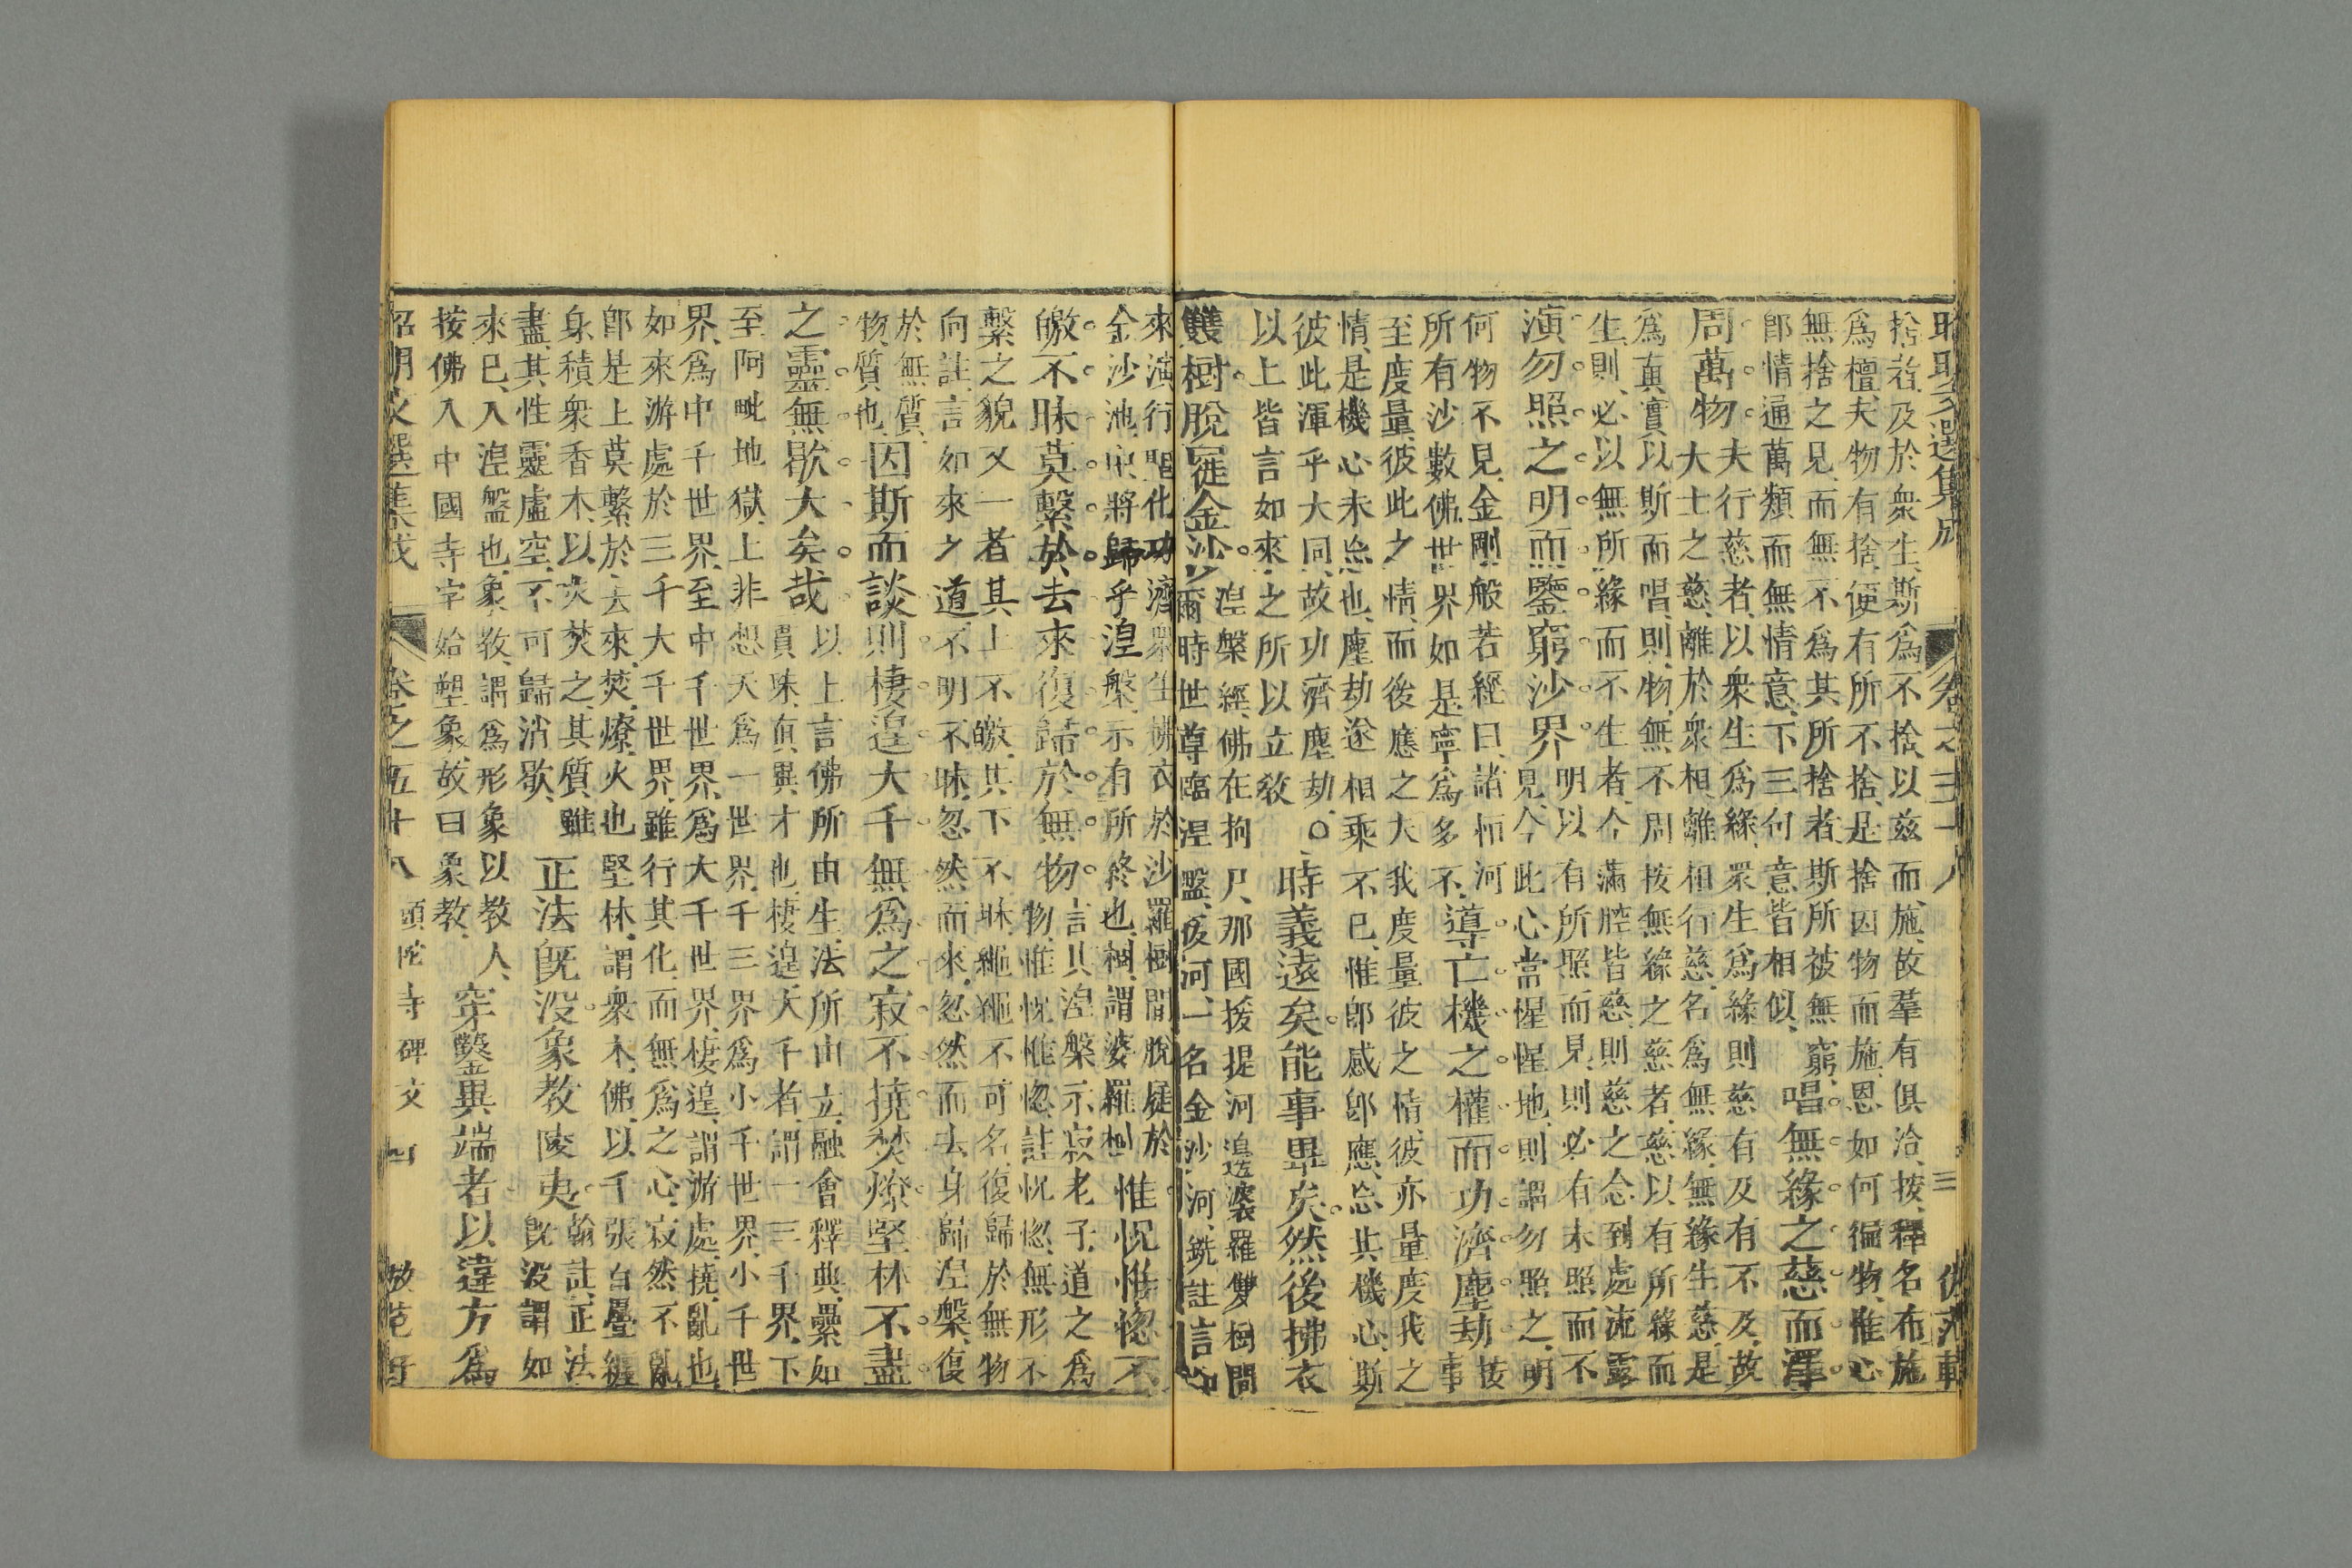 昭明文選集成 卷之五十八 三 仿范軒
捨者及於衆生斯爲不捨以兹而施故羣有俱洽按釋名布施
爲檀夫物有捨便有所不捨是捨因物而施恩如何徧物惟心
無捨之見而無不爲其所捨者斯所被無窮
卽情通萬類而無情意下三句意皆相似
唱無緣之慈而澤
周萬物
夫行慈者以衆生爲緣衆生爲緣則慈有及有不及故
大士之慈離於衆相離相行慈名爲無緣無緣生慈是
爲真實以斯而唱則物無不周按無緣之慈者慈以有所緣而
生則必以無所緣而不生者今滿腔皆慈則慈之念到處流露
演勿照之明而鑒窮沙界
明以有所照而見則必有未照而不
見今此心當惺惺地則謂勿照之明
何物不見金剛般若經曰諸恒河
所有沙數佛世界如是寧爲多不
導亡機之權而功濟塵劫
按
事
至度量彼此之情而後應之大我度量彼之情彼亦量度我之
情是機心未忘也塵劫遂相乘不已惟卽感卽應忘其機心斯
彼此渾乎大同故功濟塵劫○
以上皆言如來之所以立教
時義遠矣能事畢矣然後拂衣
雙樹脫屣金沙
湼槃經佛在拘尸那國援提河邊婆羅雙樹間
爾時世尊臨湼盤援河一名金沙河銑註言如
來演行唱化功濟衆生拂衣於沙羅樹間脫屣於
金沙池中將歸乎湼槃示有所終也樹謂婆羅樹
惟怳惟惚不
皦不昧莫繫於去來復歸於無物
言其湼槃示寂老子道之爲
物惟怳惟惚註怳惚無形不
繫之貌又一者其上不皦其下不昧繩繩不可名復歸於無物
向註言如來之道不明不昧忽然而來忽然而去身歸湼槃復
於無質
物質也
因斯而談則棲遑大千無爲之寂不撓焚燎堅林不盡
之靈無歇大矣哉
以上言佛所由生法所由立融會釋典纍如
貫珠眞異才也棲遑大千者謂一三千界下
至阿毗地獄上非想天爲一世界千三界爲小千世界小千世
界爲中千世界至中千世界爲大千世界棲遑謂游處撓亂也
如來游處於三千大千世界雖行其化而無爲之心寂然不亂
卽是上莫繫於去來焚燎火也堅林謂衆木佛以千張白疊纏
身積衆香木以火焚之其質雖
盡其性靈虛空不可歸消歇
正法旣沒象教陵夷
翰註正法
旣沒謂如
來已入湼盤也象教謂爲形象以教人
按佛入中國寺宇始塑象故曰象教
穿鑿異端者以違方爲
昭明文選集成 卷之五十八 頭陀寺碑文 四 仿范軒